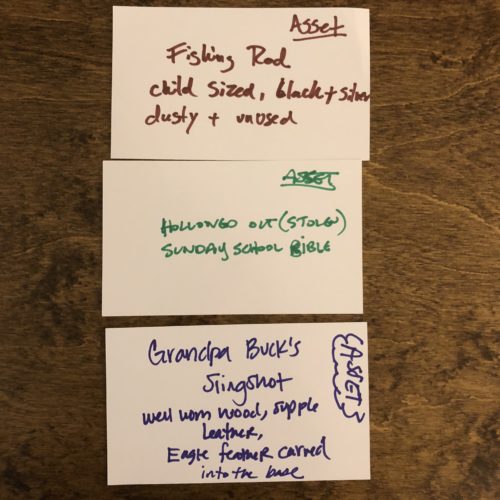 Asset
Fishing Rod
child sized, black + silver
dusty + unused
ASSET
HOLLOWED OUT (STOLEN)
SUNDAY SCHOOL BIBLE
{ASSET}
Grandpa Buck's
Slingshot
well worn wood, supple
leather,
Eagle feather carved
into the base